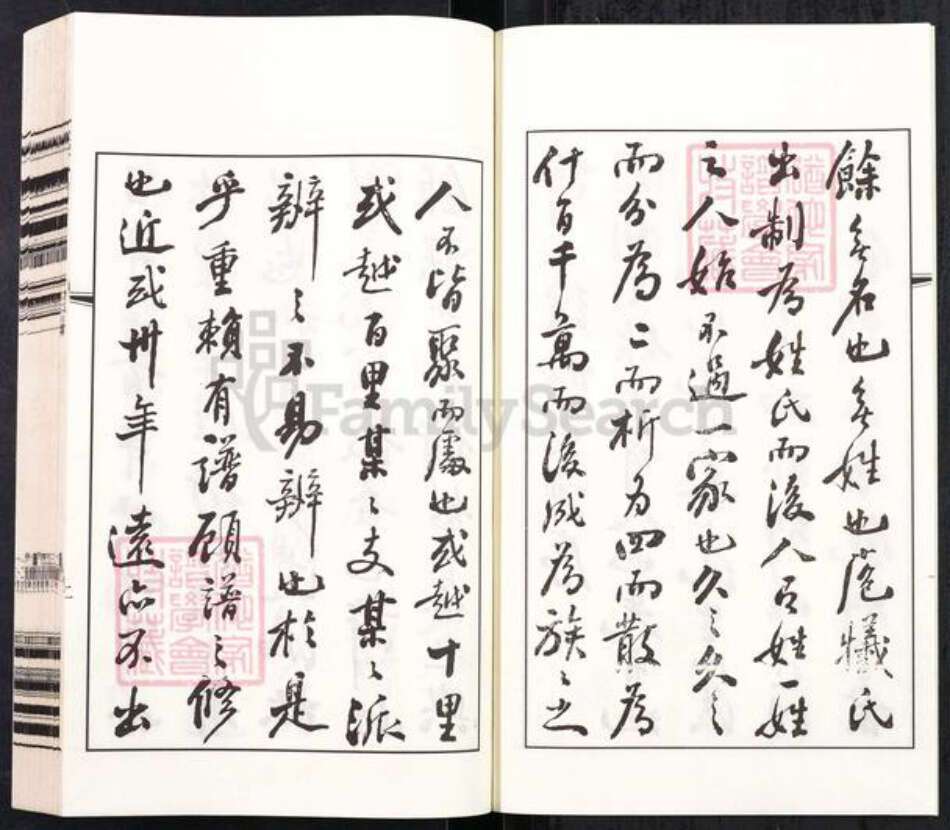 餘無名也無姓也庖犧氏
出制為姓氏而後人有姓一姓
之人始不過一家也久之久之
而分為二而析為四而散為
什百千萬而後成為族之
人不皆聚而處也或越十里
或越百里某之支某之派
辦之不易辦也於是
乎重賴有譜顧譜之修
也近或卅年遠亦不出
FamilySearch